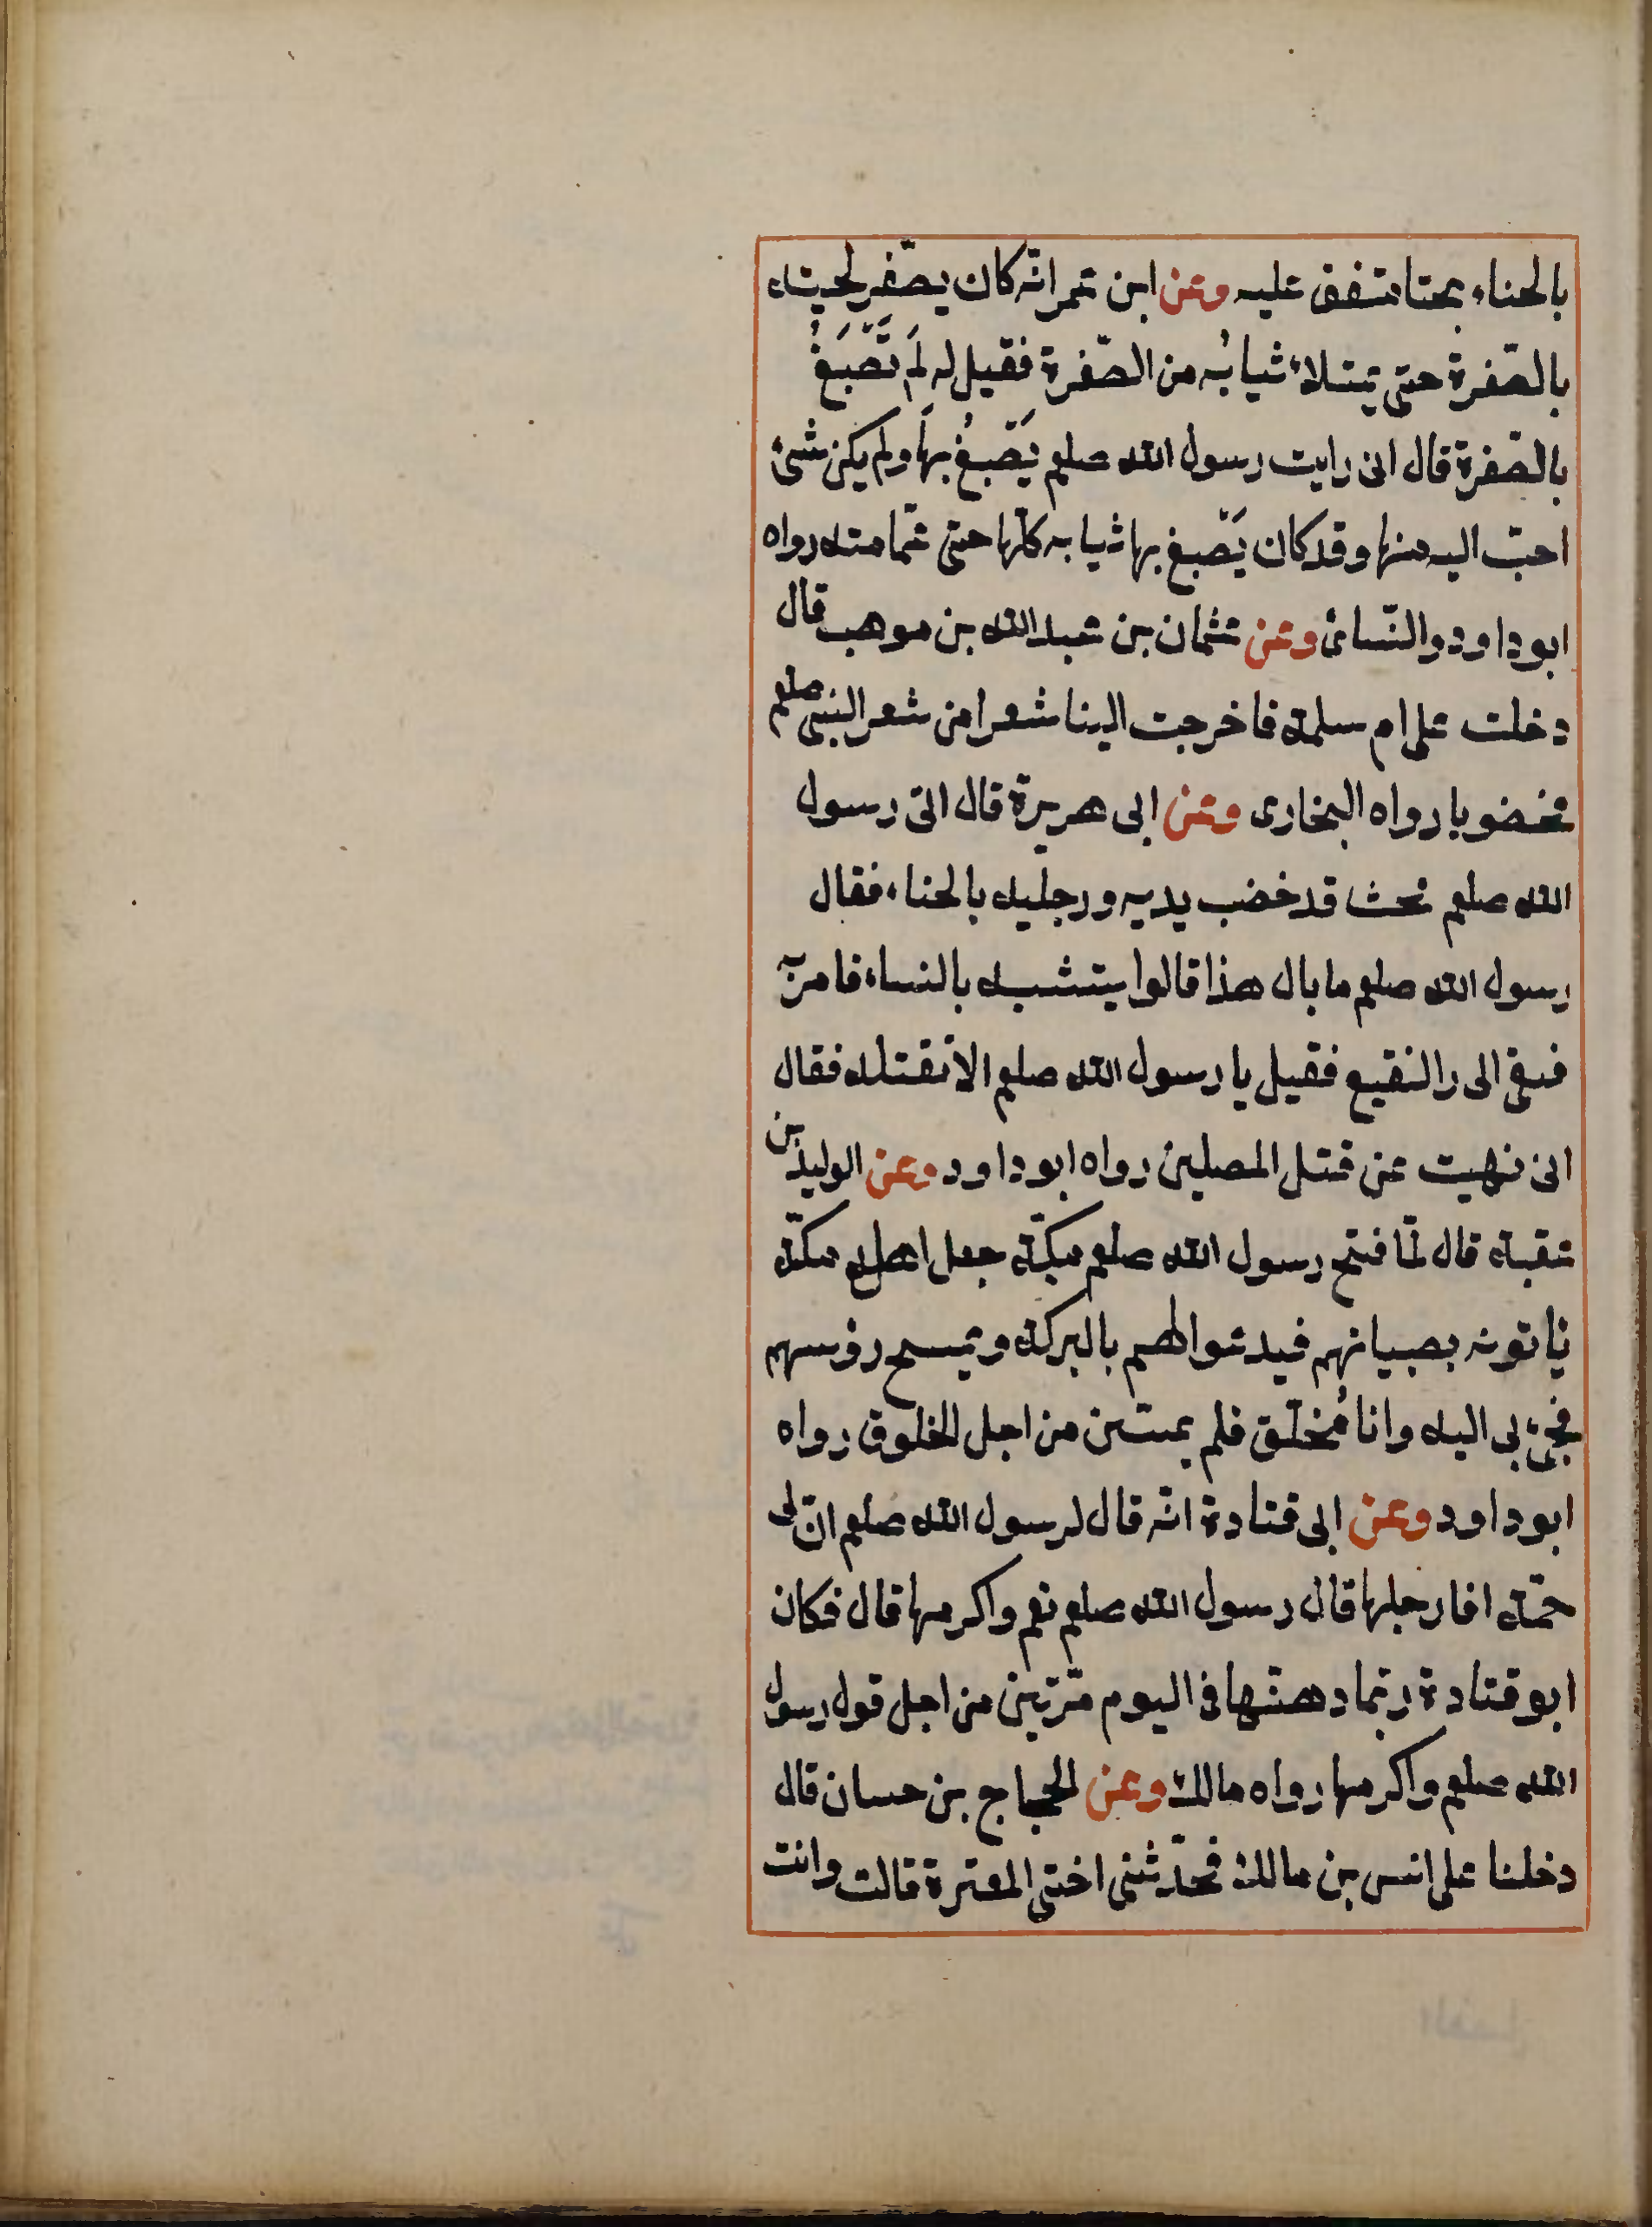 بالحناء بحتا متفق عليه وعن ابن عمر انّه كان يصفّر لحيته
بالصّفرة حتى يمتلاء ثيابُه من الصّفرة فقيل له لِمَ تَصْبَغُ
بالصّفرة قال انى رايت رسول الله صلعم يَصْبغُ بها ولم يكن شئ
احبّ اليه منها وقد كان يَصْبغ بها ثيابه كلّها حتى عمامته رواه
ابو داود والنّسائ وعن عثمان بن عبد الله بن موهب قال
دخلت على ام سلمة فاخرجت الينا شعرا من شعر النبى صلعم
مخضوبا رواه البخارى وعن ابى هريرة قال اتى رسول
الله صلعم مخنث قد خضب يديه ورجليه بالحناء فقال
رسول الله صلعم ما بال هذا قالوا يتشبه بالنساء فامر به
فنفى الى النقيع فقيل يا رسول الله صلعم الا نقتله فقال
انى نهيت عن قتل المصلين رواه ابو داود وعن الوليد بن
عقبة قال لمّا فتح رسول الله صلعم مكّة جعل اهل مكّة
ياتونه بصبيانهم فيدعوا لهم بالبركة ويمسح رؤسهم
فجئ بى اليه وانا مُخلّق فلم يمسّنى من اجل الخلوق رواه
ابو داود وعن ابى قتادة انّه قال لرسول الله صلعم انّ لى
جمّة افارجلها قال رسول الله صلعم نعم واكرمها قال فكان
ابو قتادة ربّما دهنّها فى اليوم مرّتين من اجل قول رسول
الله صلعم واكرمها رواه مالك وعن الحجاج بن حسان قال
دخلنا على انس بن مالك فحدّثتنى اختى المغيرة قالت وانت